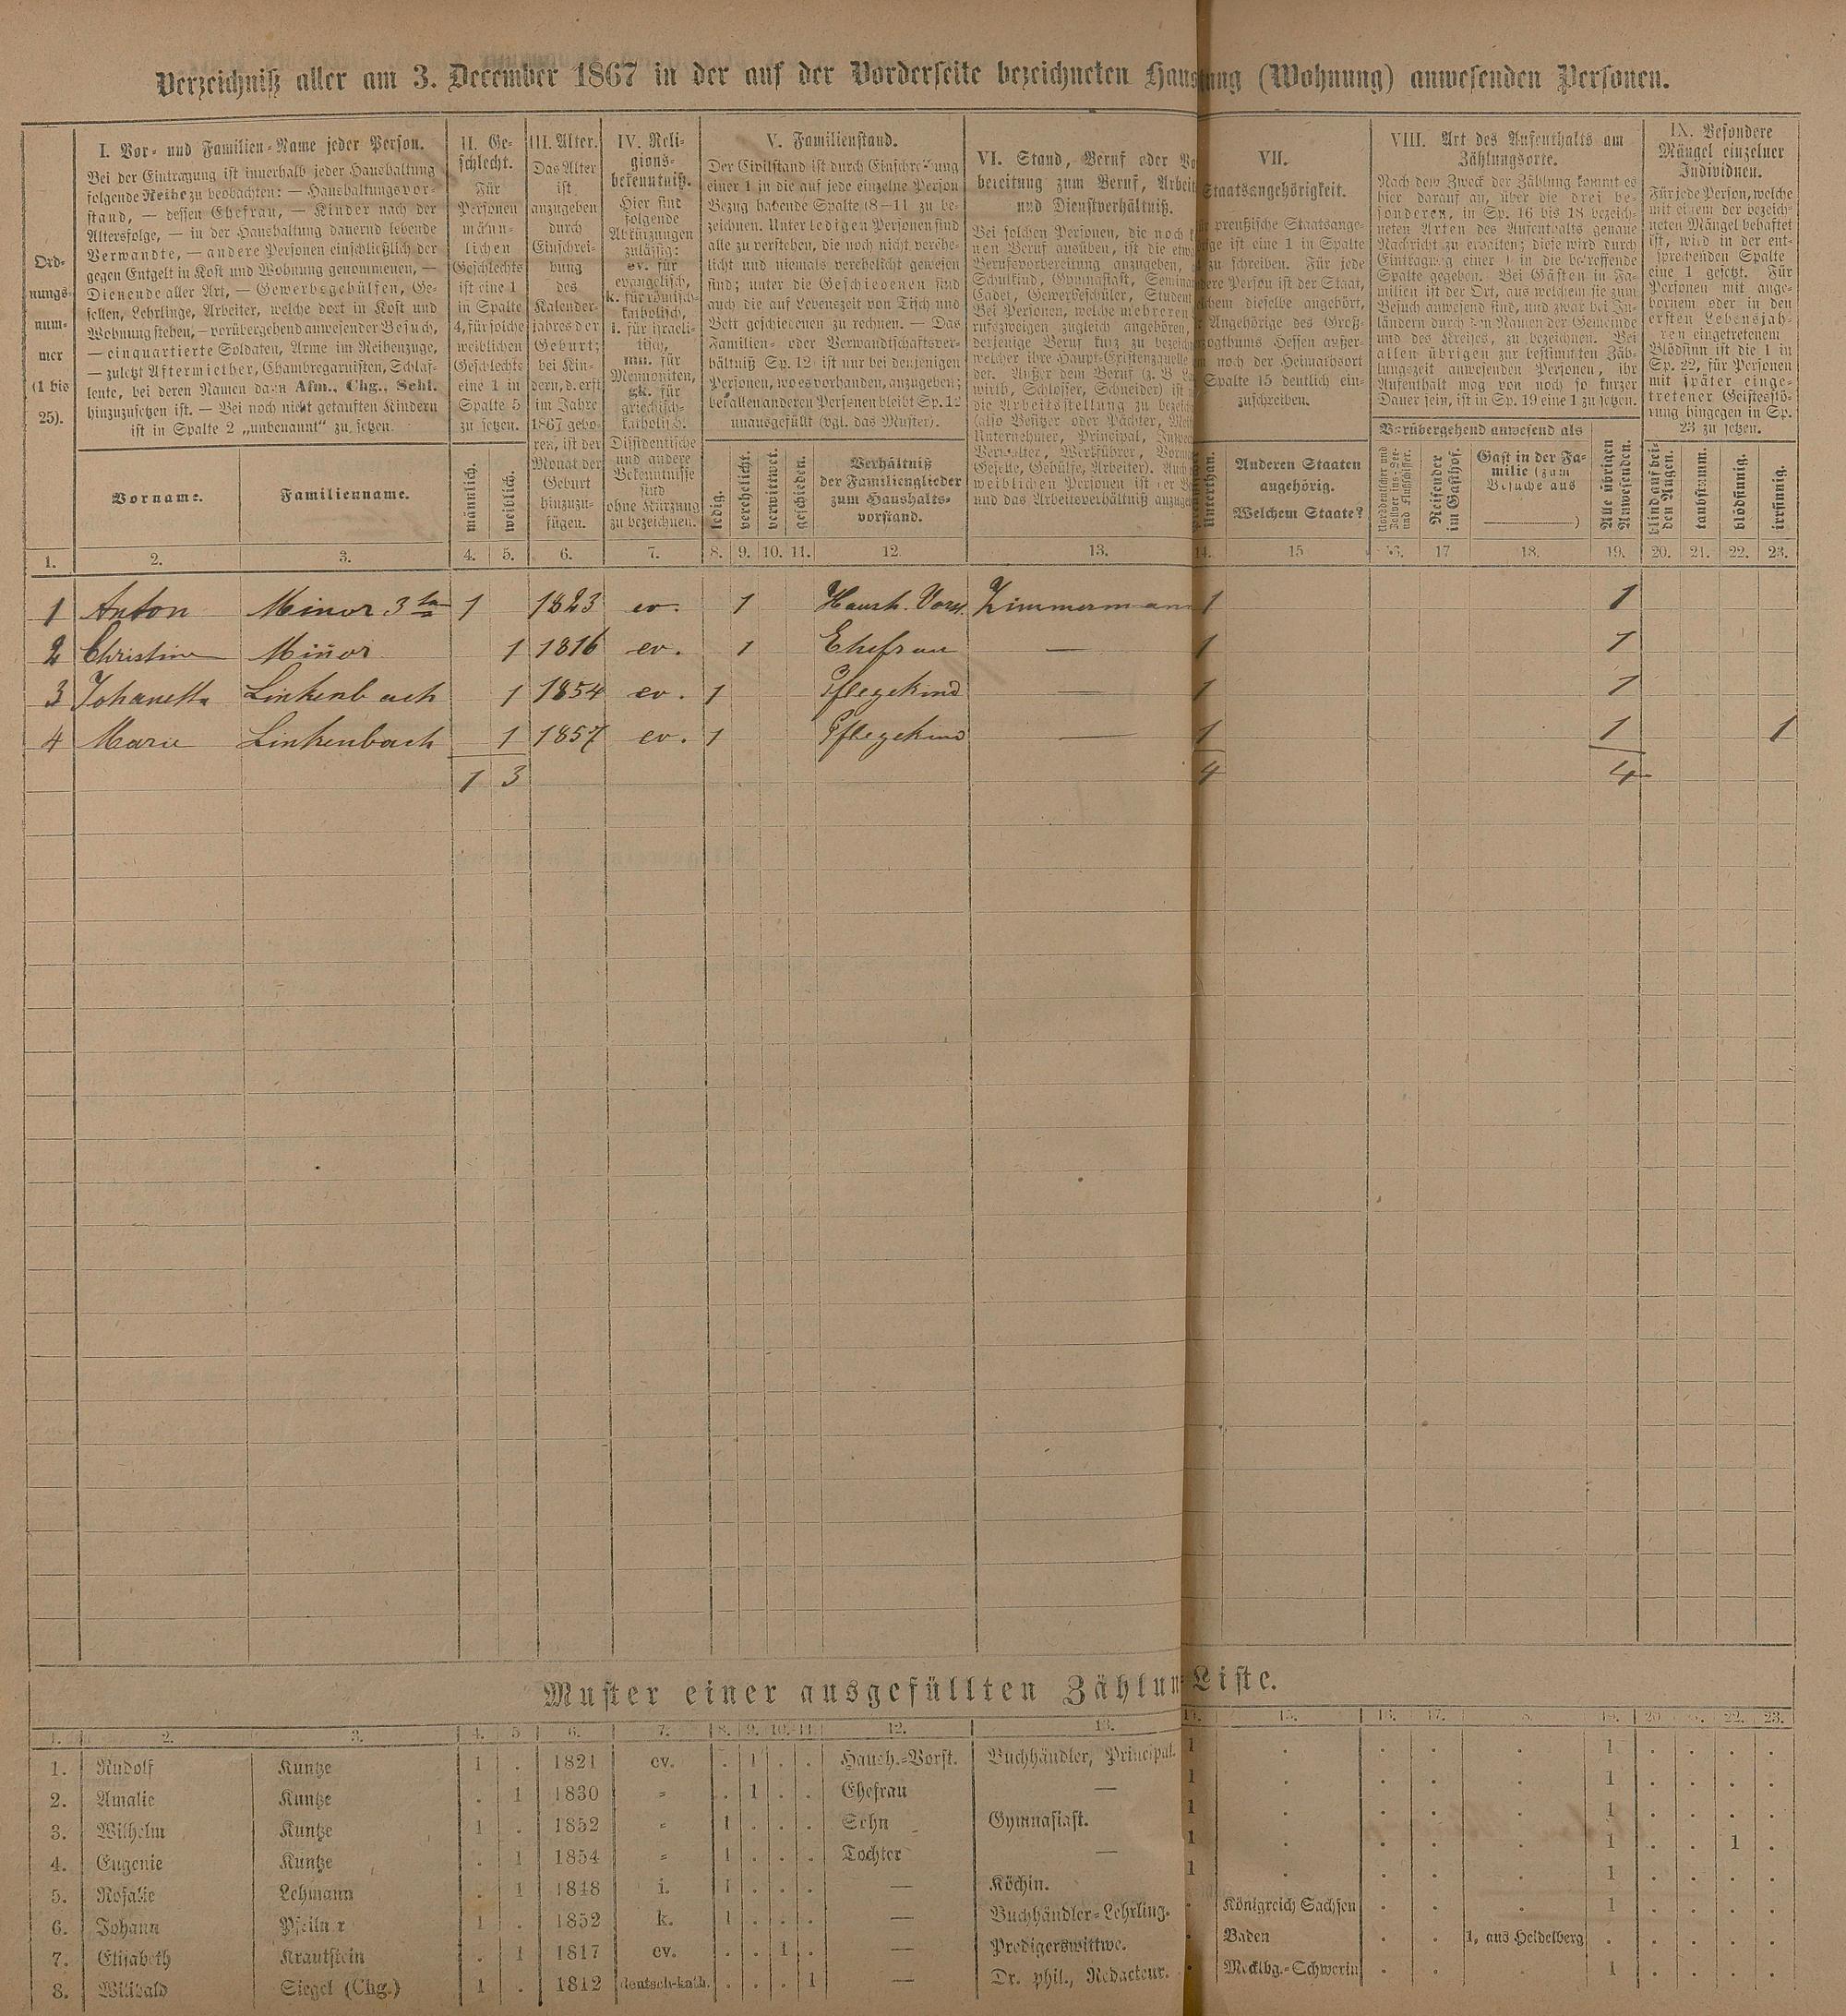 Verzeichniß aller am 3. December 1867 in der auf der Vorderseite bezeichneten (Wohnung) anwesenden Personen.
Ord-
nungs-
num-
mer
(1 bis
25).
I. Vor- und Familien-Name jeder Person.
Bei der Eintragung ist innerhalb jeder Haushaltung
folgende Reihe zu beobachten: — Haushaltungsvor-
stand, — dessen Ehefrau, — Kinder nach der
Altersfolge, — in der Haushaltung dauernd lebende
Verwandte, — andere Personen einschließlich der
gegen Entgelt in Kost und Wohnung genommenen, —
Dienende aller Art, — Gewerbsgehülfen, Ge-
sellen, Lehrlinge, Arbeiter, welche dort in Kost und
Wohnung stehen, — vorübergehend anwesender Besuch,
— einquartierte Soldaten, Arme im Reihenzuge,
— zuletzt Aftermiether, Chambregarnisten, Schlaf-
leute, bei deren Namen dann Afm., Chg., Schl.
hinzuzusetzen ist. — Bei noch nicht getauften Kindern
ist in Spalte 2 „unbenannt“ zu setzen.
Vorname.
Familienname.
II. Ge-
schlecht.
Für
Personen
männ-
lichen
Geschlechts
ist eine 1
in Spalte
4, für solche
weiblichen
Geschlechts
eine 1 in
Spalte 5
zu setzen.
männlich.
weiblich.
III. Alter.
Das Alter
ist
anzugeben
durch
Einschrei-
bung
des
Kalender-
jahres der
Geburt;
bei Kin-
dern, d. erst
im Jahre
1867 gebo-
ren, ist der
Monat der
Geburt
hinzuzu-
fügen.
IV. Reli-
gions-
bekenntniß.
Hier sind
folgende
Abkürzungen
zulässig:
ev. für
evangelisch,
k. für römisch-
katholisch,
i. für israeli-
tisch,
mn. für
Mennoniten,
gk. für
griechisch-
katholisch.
Dissidentische
und andere
Bekenntnisse
sind
ohne Kürzung
zu bezeichnen.
V. Familienstand.
Der Civilstand ist durch Einschreibung
einer 1 in die auf jede einzelne Person
Bezug habende Spalte (8—11 zu be-
zeichnen. Unter ledigen Personen sind
alle zu verstehen, die noch nicht verehe-
licht und niemals verehelicht gewesen
sind; unter die Geschiedenen sind
auch die auf Lebenszeit von Tisch und
Bett geschiedenen zu rechnen. — Das
Familien- oder Verwandtschaftsver-
hältniß Sp. 12 ist nur bei denjenigen
Personen, wo es vorhanden, anzugeben;
bei allen anderen Personen bleibt Sp. 12
unausgefüllt (vgl. das Muster).
ledig.
verehelicht.
verwittwet.
geschieden.
Verhältniß
der Familienglieder
zum Haushalts-
vorstand.
VI. Stand, Beruf oder
bereitung zum Beruf,
und Dienstverhältniß.
Bei solchen Personen, die noch
nen Beruf ausüben, ist die
Berufsvorbereitung anzugeben,
Schulkind, Gymnasiast,
Cadet, Gewerbeschüler,
Bei Personen, welche mehreren
rufszweigen zugleich angehören,
derjenige Beruf kurz zu
welcher ihre Haupt-Existenzquelle
det. Außer dem Beruf (z. B.
wirth, Schlosser, Schneider) ist
die Arbeitsstellung zu
(also Besitzer oder Pächter,
Unternehmer, Principal,
Verwalter, Werkführer,
Geselle, Gehülfe, Arbeiter). Auch
weiblichen Personen ist der
und das Arbeitsverhältniß
VII.
Staatsangehörigkeit.
preußische Staatsange-
ist eine 1 in Spalte
zu schreiben. Für jede
Person ist der Staat,
dieselbe angehört,
Angehörige des Groß-
Hessen außer-
noch der Heimathsort
Spalte 15 deutlich ein-
zuschreiben.
Unterthan.
Anderen Staaten
angehörig.
Welchem Staate?
VIII. Art des Aufenthalts am
Zählungsorte.
Nach dem Zweck der Zählung kommt es
hier darauf an, über die drei be-
sonderen, in Sp. 16 bis 18 bezeich-
neten Arten des Aufenthalts genaue
Nachricht zu erhalten; diese wird durch
Eintragung einer 1 in die betreffende
Spalte gegeben. Bei Gästen in Fa-
milien ist der Ort, aus welchem sie zum
Besuch anwesend sind, und zwar bei In-
ländern durch den Namen der Gemeinde
und des Kreises, zu bezeichnen. Bei
allen übrigen zur bestimmten Zäh-
lungszeit anwesenden Personen, ihr
Aufenthalt mag von noch so kurzer
Dauer sein, ist in Sp. 19 eine 1 zu setzen.
Vorübergehend anwesend als
Reisender
im Gasthof.
Gast in der Fa-
milie (zum
Besuche aus
)
Alle übrigen
Anwesenden.
IX. Besondere
Mängel einzelner
Individuen.
Für jede Person, welche
mit einem der bezeich-
neten Mängel behaftet
ist, wird in der ent-
sprechenden Spalte
eine 1 gesetzt. Für
Personen mit ange-
bornem oder in den
ersten Lebensjah-
ren eingetretenem
Blödsinn ist die 1 in
Sp. 22, für Personen
mit später einge-
tretener Geistesstö-
rung hingegen in Sp.
23 zu setzen.
blind auf bei-
den Augen.
taubstumm.
blödsinnig.
irrsinnig.
1. 2. 3. 4. 5. 6. 7. 8. 9. 10. 11. 12. 13. 14. 15 16. 17 18. 19. 20. 21. 22. 23.
1 Anton Minor 3 1 1823 ev. 1 Haush. Vorst. Zimmermann 1 1
2 Christine Minor 1 1816 ev. 1 Ehefrau — 1 1
3 Johanetta Linkenbach 1 1854 ev. 1 Pflegekind — 1 1
4 Marie Linkenbach 1 1857 ev. 1 Pflegekind — 1 1 1
1 3 4 4
Muster einer ausgefüllten Liste.
1. 2. 3. 4. 5 6. 7. 8. 9. 10. 11. 12. 13. 14. 15. 16. 17. 19. 20. 22. 23.
1. Rudolf Kuntze 1 . 1821 ev. . 1 . . Haush.-Vorst. Buchhändler, Principal. 1 . . . . 1 . . . .
2. Amalie Kuntze . 1 1830 „ . 1 . . Ehefrau — 1 . . . . 1 . . . .
3. Wilhelm Kuntze 1 . 1852 „ 1 . . . Sohn Gymnasiast. 1 . . . . 1 . . . .
4. Eugenie Kuntze . 1 1854 „ 1 . . . Tochter — 1 . . . . 1 . . 1 .
5. Rosalie Lehmann . 1 1848 i. 1 . . . — Köchin. 1 . . . . 1 . . . .
6. Johann 1 . 1852 k. 1 . . . — Buchhändler-Lehrling. . Königreich Sachsen . . . 1 . . . .
7. Elisabeth Krautstein . 1 1817 ev. . . 1 . — Predigerswittwe. . Baden . . 1, aus Heidelberg . . . . .
8. Willibald Siegel (Chg.) 1 . 1812 deutsch-kath. . . . 1 — Dr. phil., Redacteur. . Mecklbg.-Schwerin . . . 1 . . . .